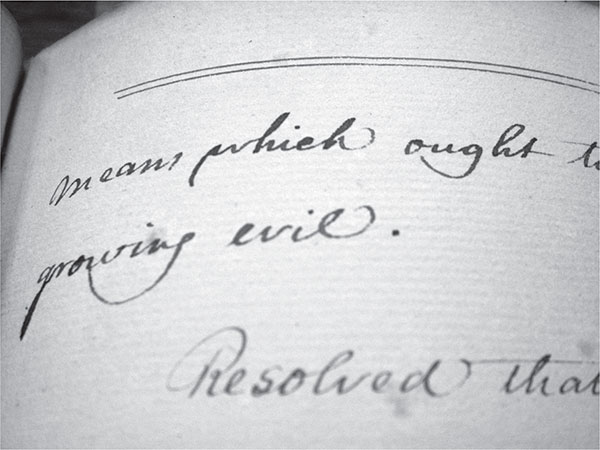 means which ought
growing evil.
Resolved that